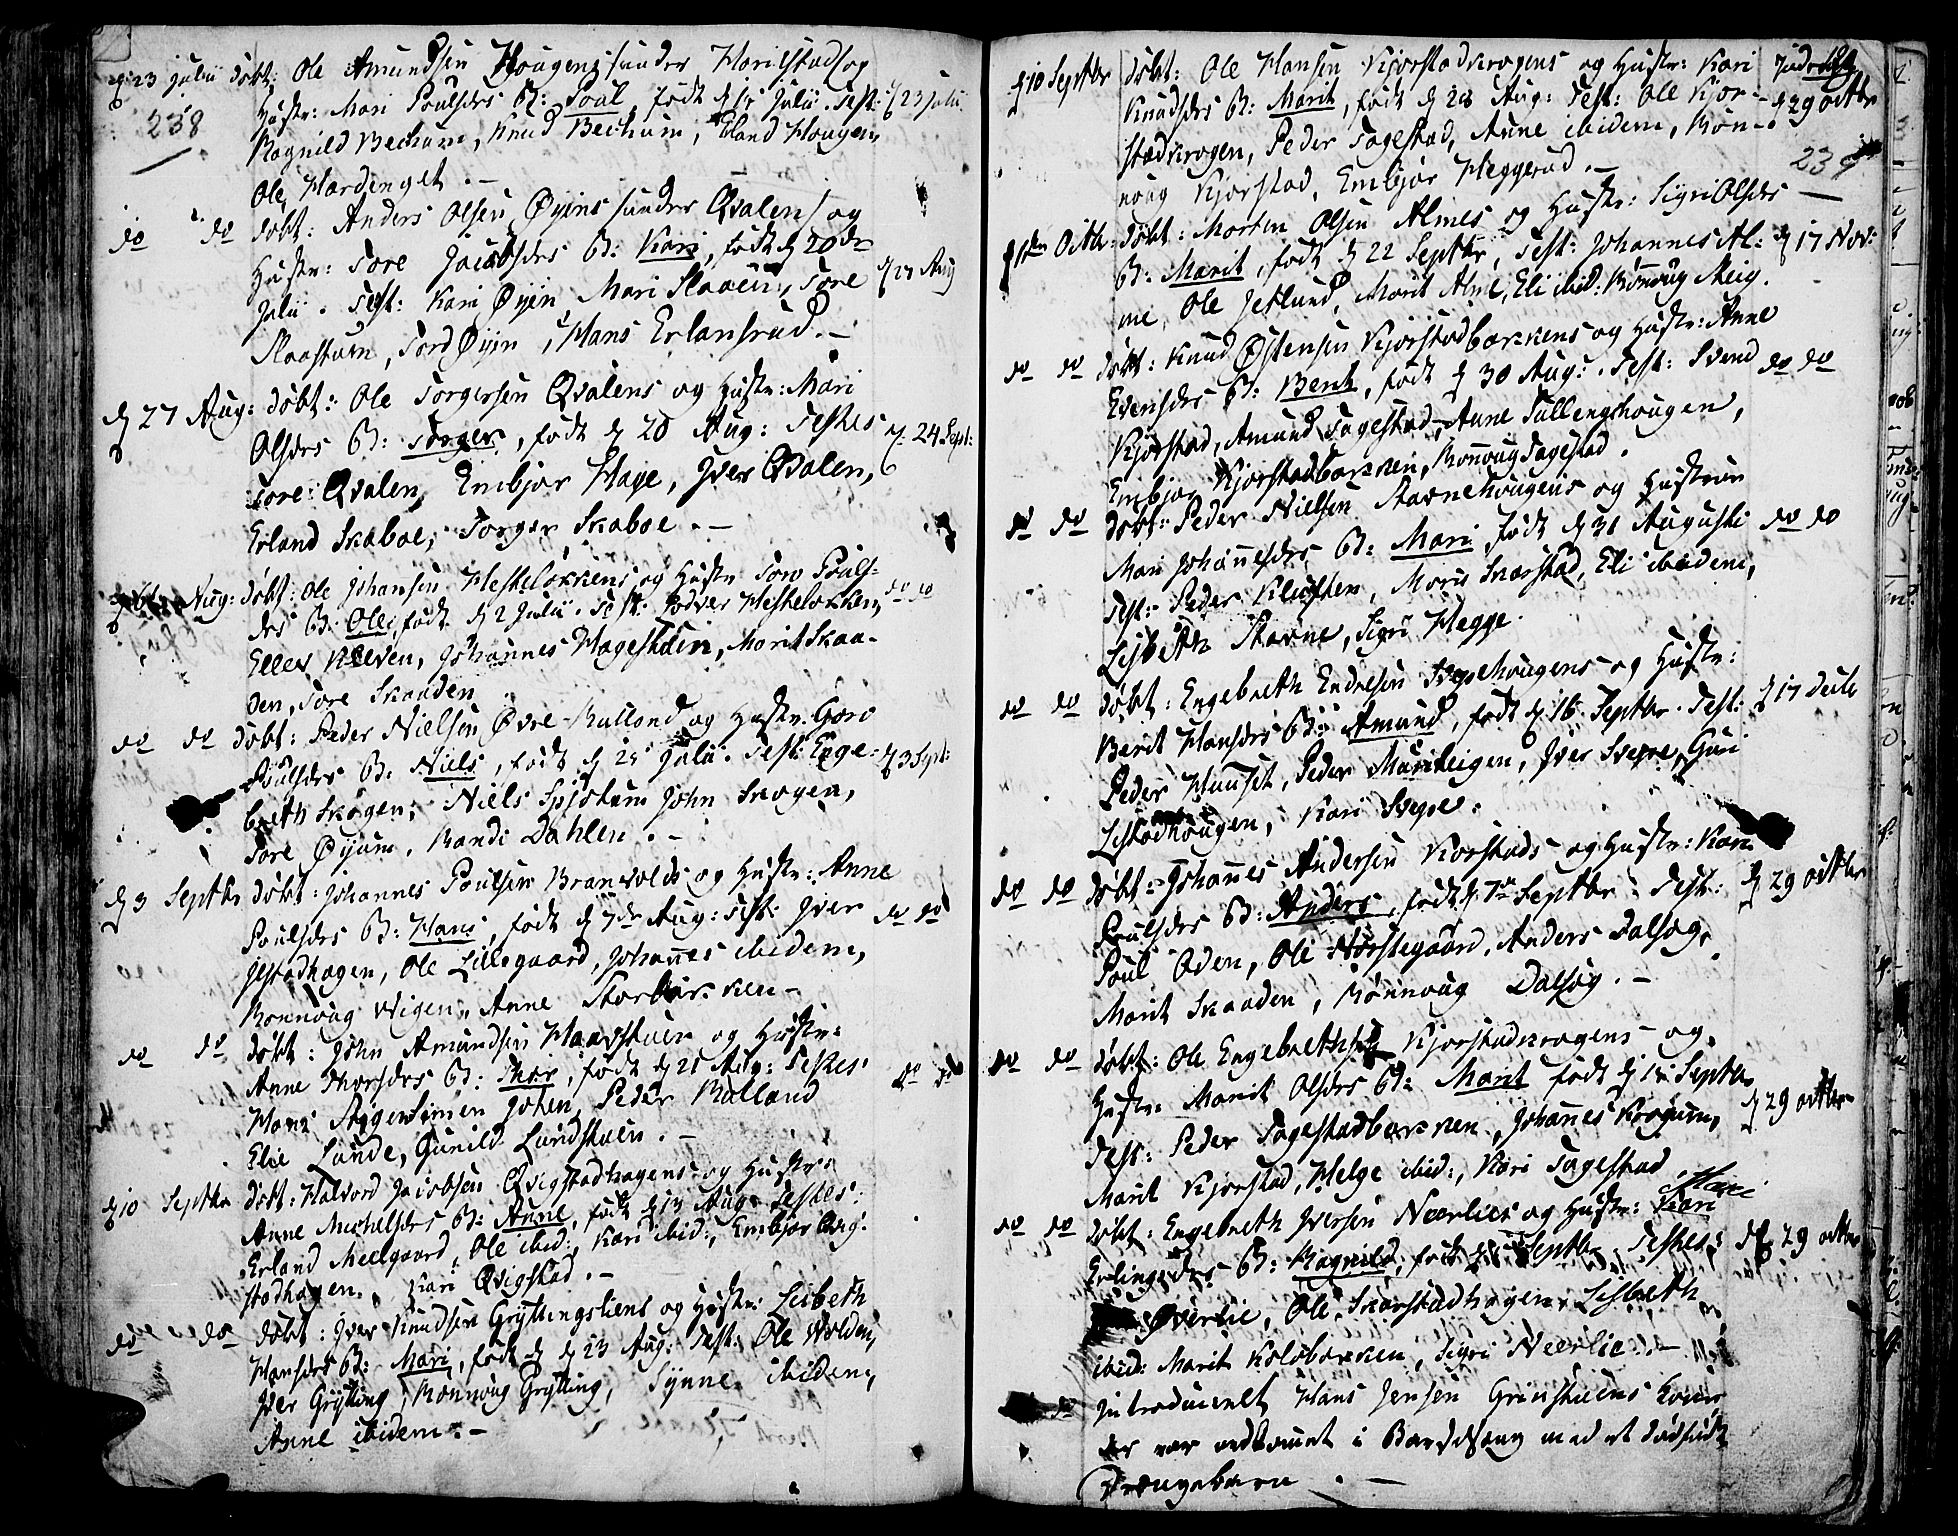 d 23 Julii døbt: Ole Amundsen Hougens sunder Harilstad og
238 Hustr: Mari Poulsdrs B: Poul, født d Julii. Test: d 23 Julii
Ragnild Bechum, Knud Bechum, Erland Hougen,
Ole Hardenget. -
do do døbt: Anders Olsen Øyens sunder Qvalen og
Hustr: Tore Jacobsdrs B: Kari, født d 20de
Julii. Test: Kari Øyen, Mari Slaaen, Tore d 27 Aug
Slaastuen, Tord Øyen, Hans Erlansrud. -
d 27 Aug: døbt: Ole Torgersen Qvalens og Hustr: Mari
Olsdrs B: Torger, født d 20 Aug: Testes d. 24 Sept:
Tore Qvalen, Embjør Hage, Jver Qvalen,
Erland Skaboe, Torger Skaboe. -
Aug: døbt: Ole Johansen Heskeløkkens og Hustr Pouls-
drs B: Ole, født d 2 Julii. Test. Heskeløkken, do do
Johannes Hagestuen, Marit Skaa-
den, Tore Skaaden
do do døbt: Peder Nielsen Øvre-Rulland og Hustr: Goro
Poulsdrs B: Niels, født d 25 Julii. Test: Enge- d 3 Sept:
breth Skogen, Niels John Skogen,
Tore Øyum, Randi Dahlen. -
d 3 Septbr døbt: Johannes Poulsen Branvolds og Hustr: Anne
Poulsdrs B: Hans, født d 7de Aug: Test: Jver do do
Jlstadhagen, Ole Lillegaard, Johannes ibidem,
Ronnoug Wigen, Anne Storbakken -
do do døbt: John Amundsen Haavstuen og Hustr:
Anne Thorsdrs B: Thor, født d 21 Aug: Testes do do
Hans Johen, Peder Rulland
Elie Lunde, Gunild Lundstuen. -
d 10 Septbr døbt: Halvord Jacobsen Qvigstadhagens og Hustr:
Anne Michelsdrs B: Anne, født d 13 Aug: Testes:
Erland Meelgaard, Ole ibid:, Kari ibid:, Embjør Qvig-
stadhagen, Kari Qvigstad. -
do do døbt: Jver Knudsen Gryttingsliens og Hustr: Lisbeth
Hansdrs B: Mari, født d 23 Aug: Test: Ole Wolden,
Jver Grytting, Ronnoug Grytting, Synne ibidem,
Anne ibidem. -
d 10 Septbr døbt: Ole Hansen Kjorstadkrogens og Hustr: Kari
Knudsdrs B: Marit, født d 28 Aug: Test: Ole Kjor- d 29 octbr
stadkrogen, Peder Tagestad, Anne ibidem, Ron-
noug Kjorstad, Embjør Heggerud. - 239
d 1ste Octb: døbt: Morten Olsen Almes og Hustr: Sigri Olsdrs
B: Marit, født d 22 Septbr, Test: Johannes Al- d 17 Nov:
me, Ole Jetlund, Marit Alme, Eli ibid: Ronnoug Steig.
do do døbt: Knud Østensen Kjorstadbakkens og Hustr: Anne
Evensdrs B: Berit, født d 30 Aug:. Test: Svend do do
Kjorstad, Amund Tagestad, Anne Tullengshougen,
Embjør Kjorstadbakken, Ronnoug Tagestad.
do do døbt: Peder Nielsen Stavnehougens og Hustrue
Mari Johannesdrs B: Mari, født d 31 Augusti do do
Test: Peder Kluften, Moris Skarstad, Eli ibidem,
Lisbeth Stavne, Sigri Hegge.
do do døbt: Engebreth Endresen Svepehougens og Hustr:
Berit Hansdrs B: Amund, født d 16 Septbr. Test: d 17 decbr
Peder Huuset, Peder Jver Svepe, Guri
Listadhougen, Kari Svepe.
do do døbt: Johannes Andersen Korstads og Hustr: Kari
Poulsdrs B: Anders, født d 7de Septbr: Test: d 29 octbr
Poul Oden, Ole Norstegaard, Anders Dalsøg,
Marit Skaaden, Rønnoug Dalsøg. -
do do døbt: Ole Engebrethsen Kjorstadkrogens og
Hustr: Marit Olsdrs B: Marit født d Septbr
Test: Peder Tagestadbakken, Johannes Korgum, d 29 octbr
Marit Kjorstad, Helge ibid:, Kari Tagestad
Mari
do do døbt: Engebreth Jversen Neerlies og Hustr: Kari
Erlingsdrs B: Ragnild, født d Septbr, Testes: d 29 octbr
Øverlie, Ole Skorstadhagen, Lisbeth
ibid: Marit Kolobakken, Sigri Neerlie. -
do Jntroduceret Hans Jensen Grinstuens Kone
der var nedkomet i Barselseng med et dødfødt
Drengebarn. -